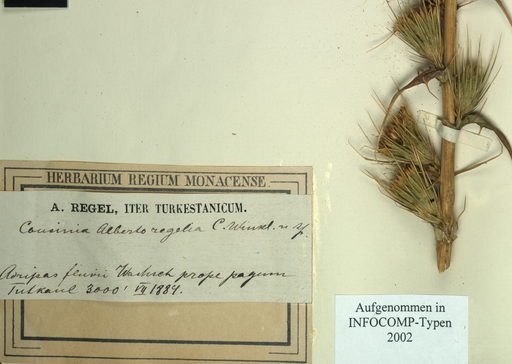 HERBARIUM REGIUM MONACENSE
A. REGEL, ITER TURKESTANICUM.
Cousinia Alberto regelia C. Winkl. n. sp.
Aripas fluvii Wachsch prope pagum
Tutkaul 3000' VII 1884.
Aufgenommen in
INFOCOMP-Typen
2002